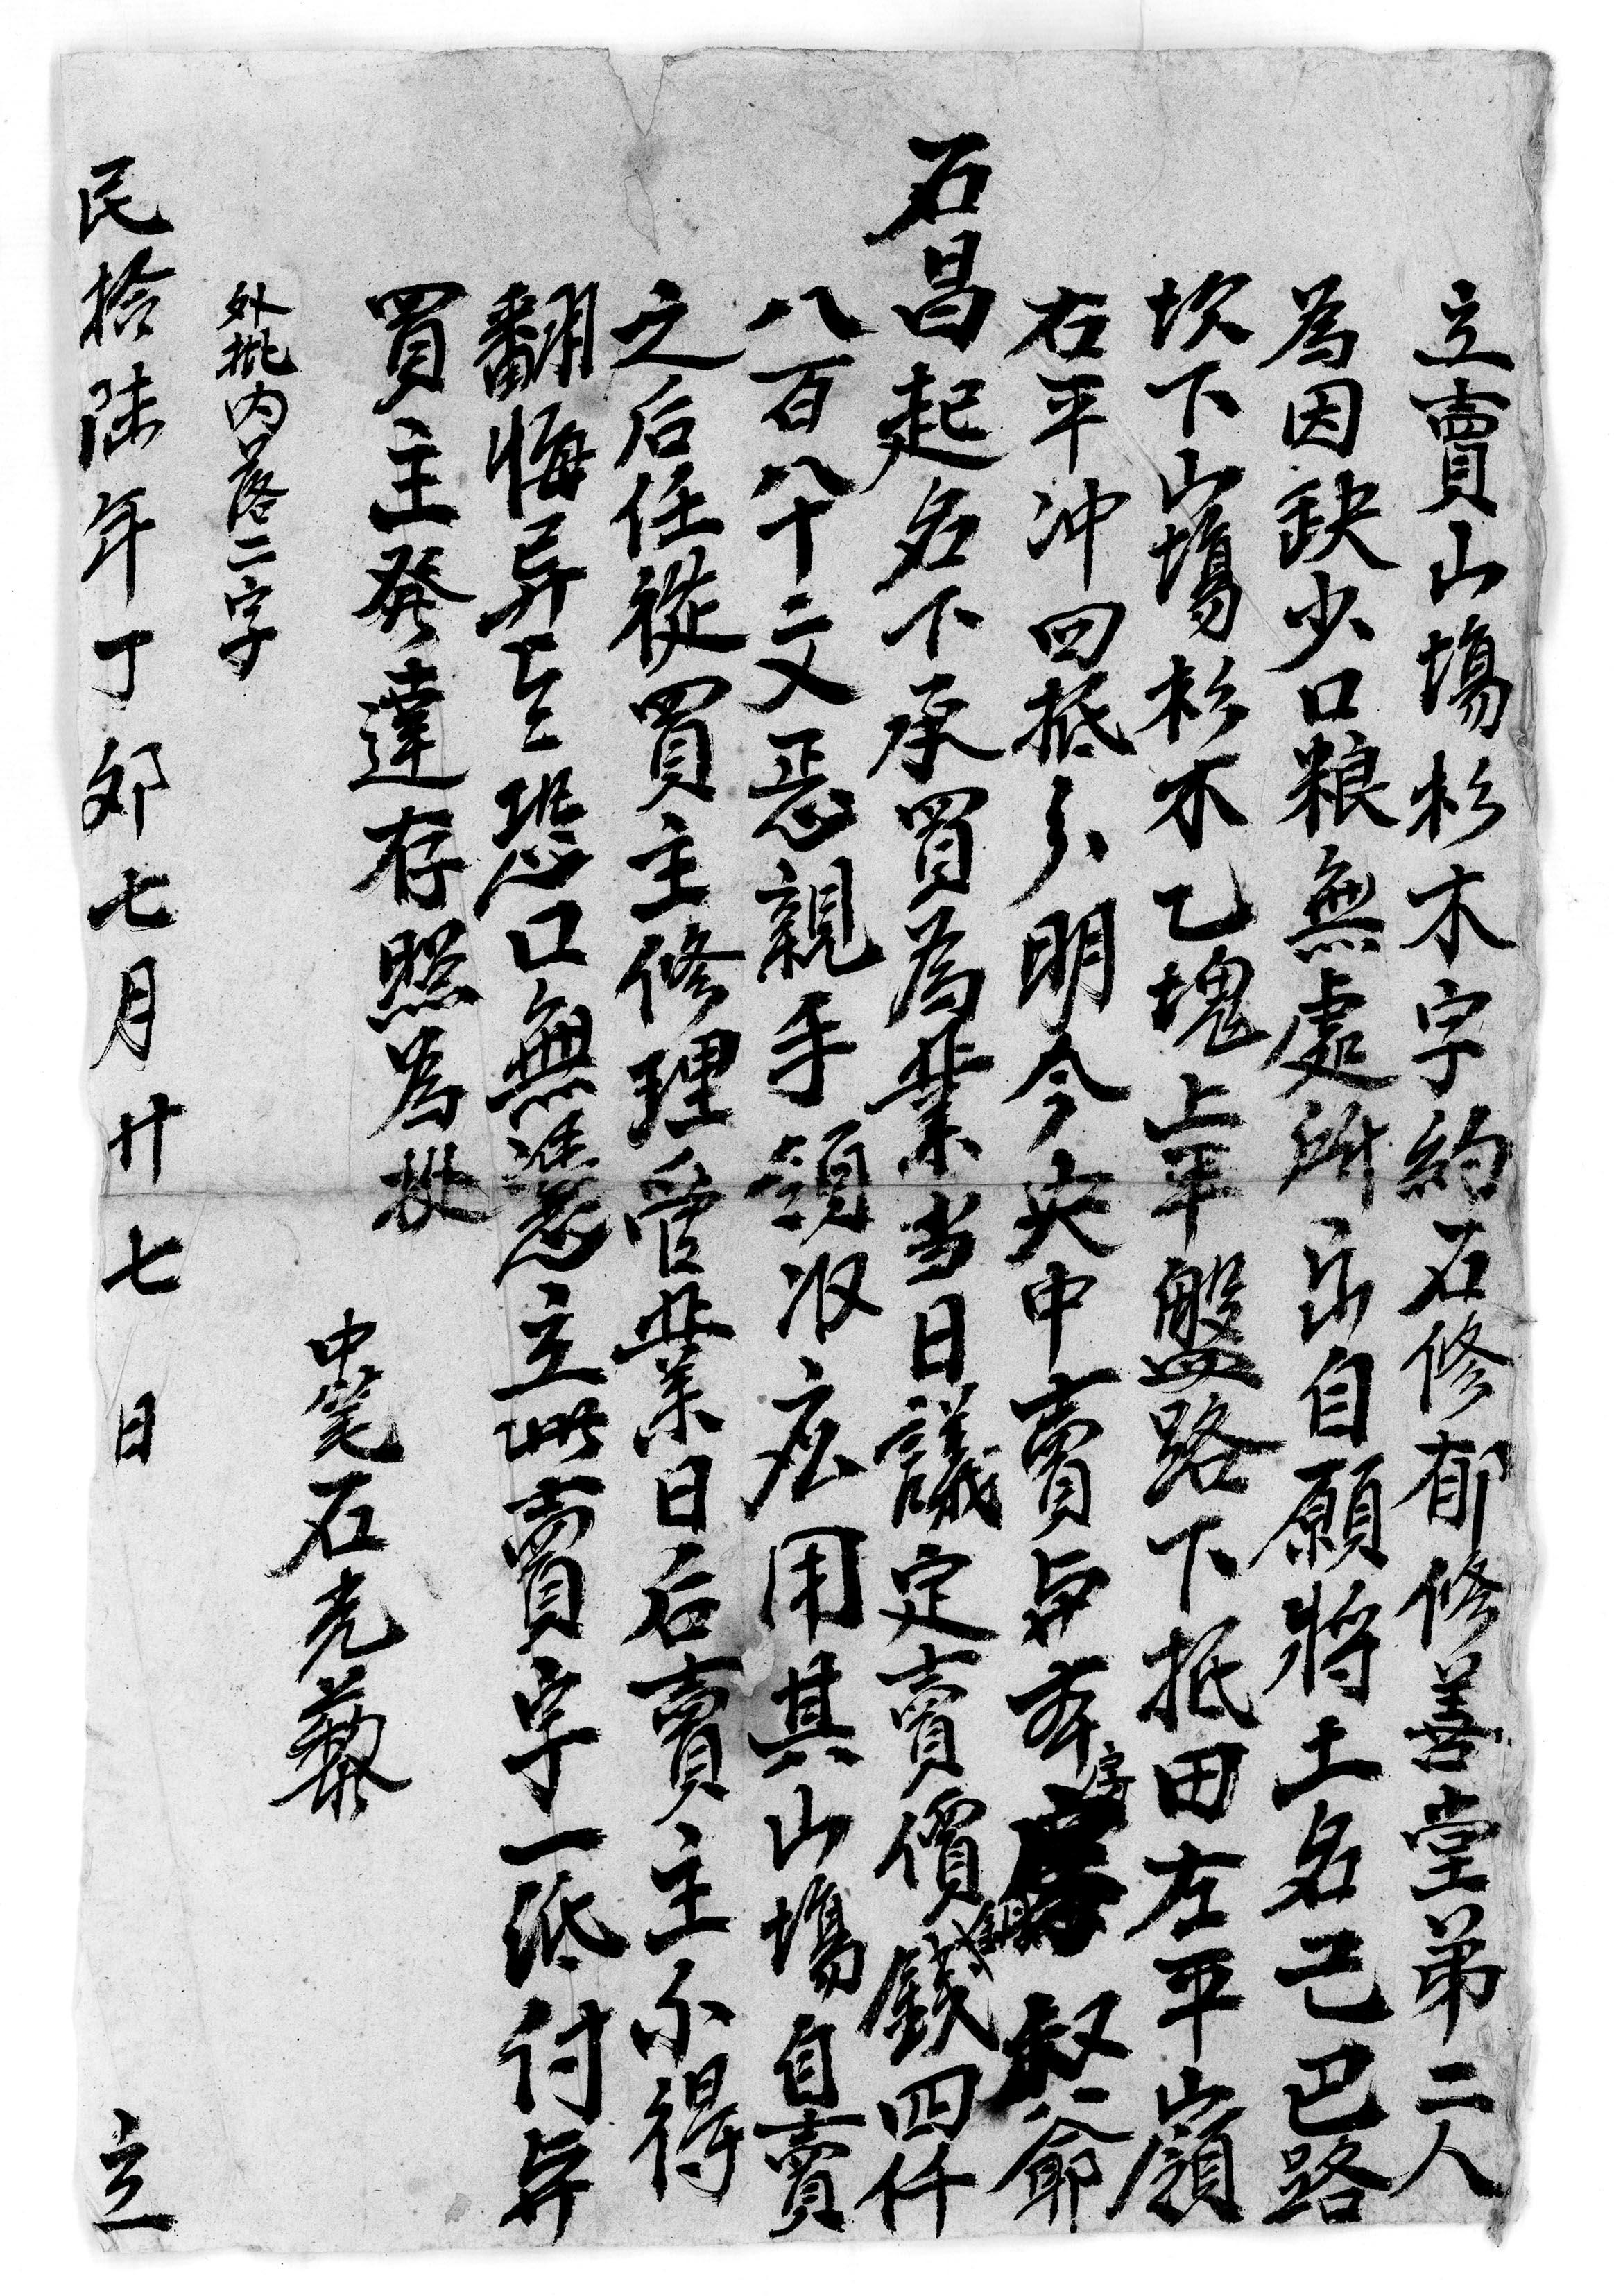 立賣山塲杉木字約石修郁修善堂弟二人
為因缺少口粮無處所出自願將土名己巴路
坎下山塲杉木乙塊上平盤路下抵田左平山嶺
右平冲四抵分明今央中賣与本房叔爺
石昌起名下承買為業当日議定賣價銅錢四仟
八百八十二文正親手領收应用其山塲自賣
之后任從買主修理管業日后賣主不得
翻悔异言恐口無憑立此賣字一紙付与
買主發達存照為批
中筆石光藜
外批内落二字
民拾陆年丁夘七月廿七日 立